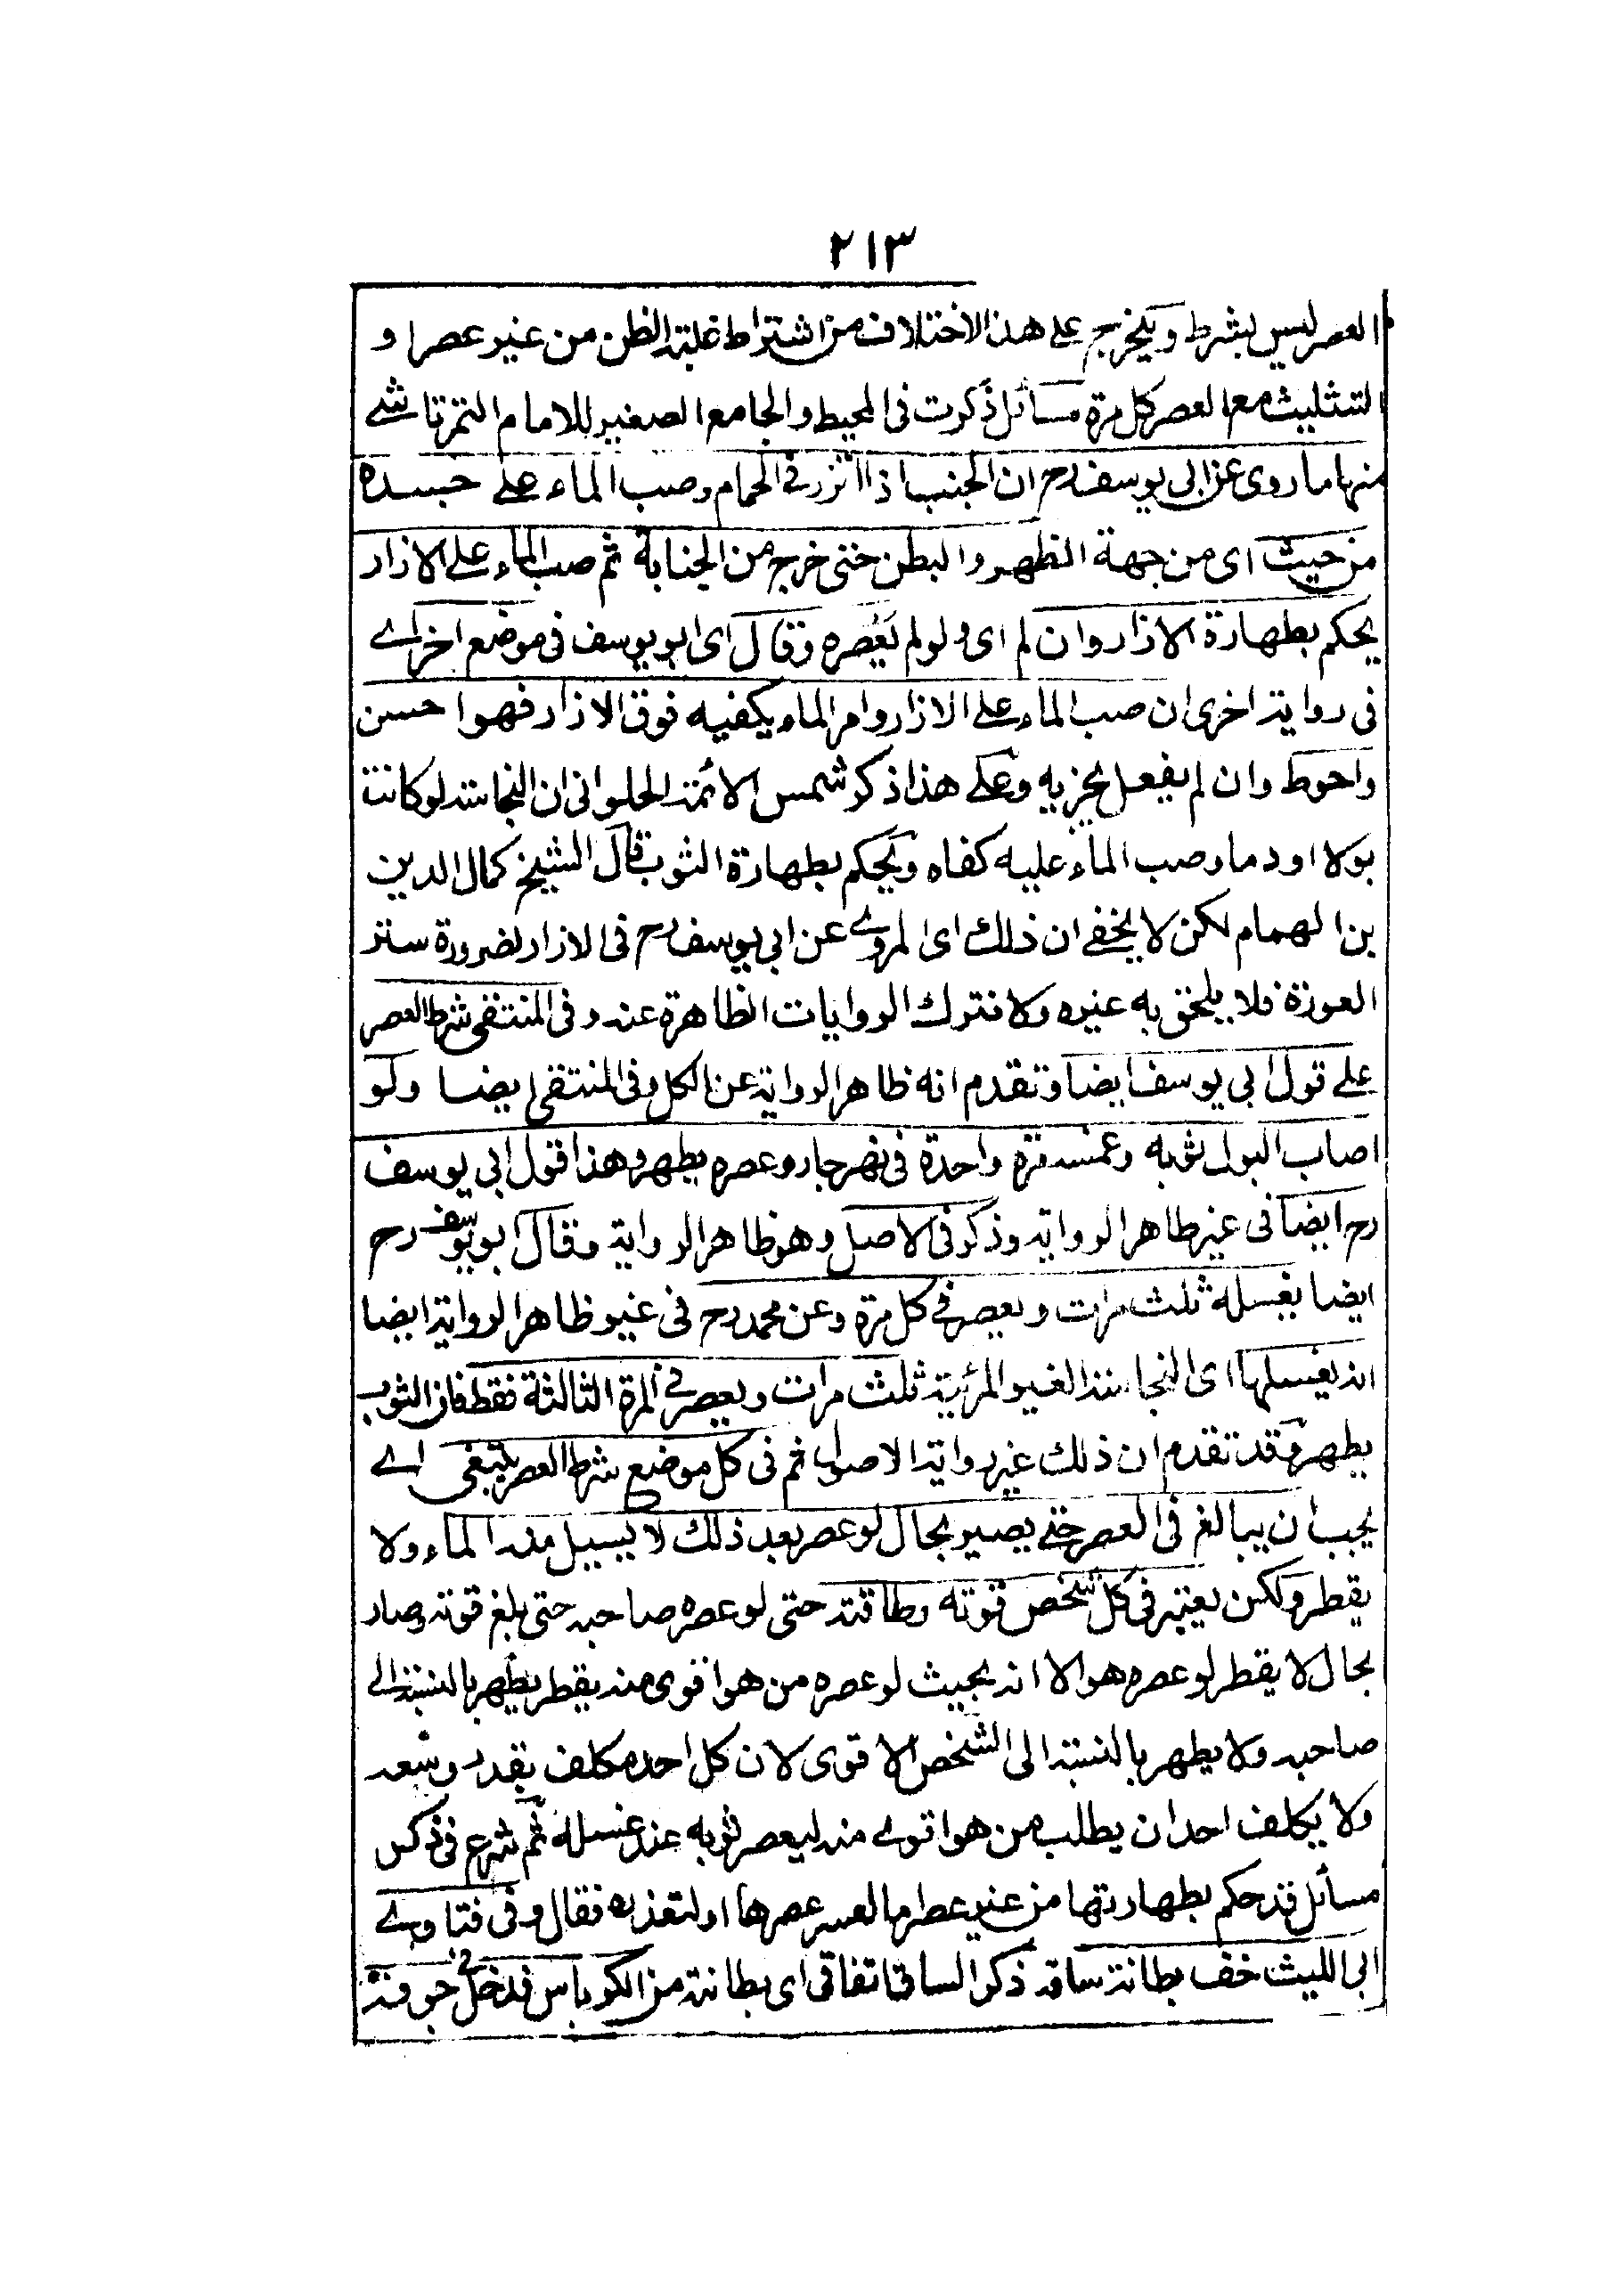 ٢١٣
العصر ليس بشرط ويخرج على هذا الاختلاف من اشتراط غلبة الظن من غير عصر او
التثليث مع العصر كل مرة مسائل ذكرت فى المحيط والجامع الصغير للامام التمرتاشے
منها ما روى عن ابى يوسف رح ان الجنب اذا اتزر فى الحمام وصب الماء على جسده
من حيث اى من جهة الظهر والبطن حتى خرج من الجنابة ثم صب الماء على الازار
يحكم بطهارة الازار وان لم اى ولو لم يعصره وقال اى ابو يوسف فى موضع اخر اے
فى رواية اخرى ان صب الماء على الازار وامر الماء يكفيه فوق الازار فهوا حسن
واحوط وان لم يفعل يجزيه وعلى هذا ذكر شمس الائمة الحلوانى ان النجاسة لو كانت
بولا او دما وصب الماء عليه كفاه ويحكم بطهارة الثوب قال الشيخ كمال الدين
بن الهمام لكن لا يخفے ان ذلك اى المروے عن ابى يوسف رح فى الازار لضرورة ستر
العورة فلا يلحق به غيره ولا تترك الروايات الظاهرة عنه وفى المنتقى شرط العصر
على قول ابى يوسف ايضا وتقدم انه ظاهر الرواية عن الكل وفى المنتقى ايضا ولو
اصاب البول ثوبه وغمسه مرة واحدة فى نهر جار وعصره يطهر وهذا قول ابى يوسف
رح ايضا فى غير ظاهر الرواية وذكر فى الاصل وهو ظاهر الرواية وقال ابو يوسف رح
ايضا يغسله ثلث مرات ويعصر فى كل مرة وعن محمد رح فى غير ظاهر الرواية ايضا
انه يغسلها اى النجاسة الغير المرئية ثلث مرات ويعصر فى المرة الثالثة فقط فان الثوب
يطهر وقد تقدم ان ذلك غير رواية الاصول ثم فى كل موضع شرط العصر ينبغى اے
يجب ان يبالغ فى العصر حتے يصير بحال لو عصر بعد ذلك لا يسيل منه الماء ولا
يقطر ولكن يعتبر فى كل شخص قوته وطاقته حتى لو عصره صاحبه حتى بلغ قوته وصار
بحال لا يقطر لو عصره هو الا انه بحيث لو عصره من هو اقوى منه يقطر يطهر بالنسبة الى
صاحبه ولا يطهر بالنسبة الى الشخص الاقوى لان كل احد مكلف بقدر وسعه
ولا يكلف احد ان يطلب من هو اقوے منه ليعصر ثوبه عند غسله ثم شرع فى ذكر
مسائل قد حكم بطهارتها من غير عصر اما لعسر عصرها او لتعذره فقال وفى فتاوے
ابى الليث خف بطانة ساقه ذكر الساق اتفاقى اى بطانته من الكرباس فدخل فى جوفه